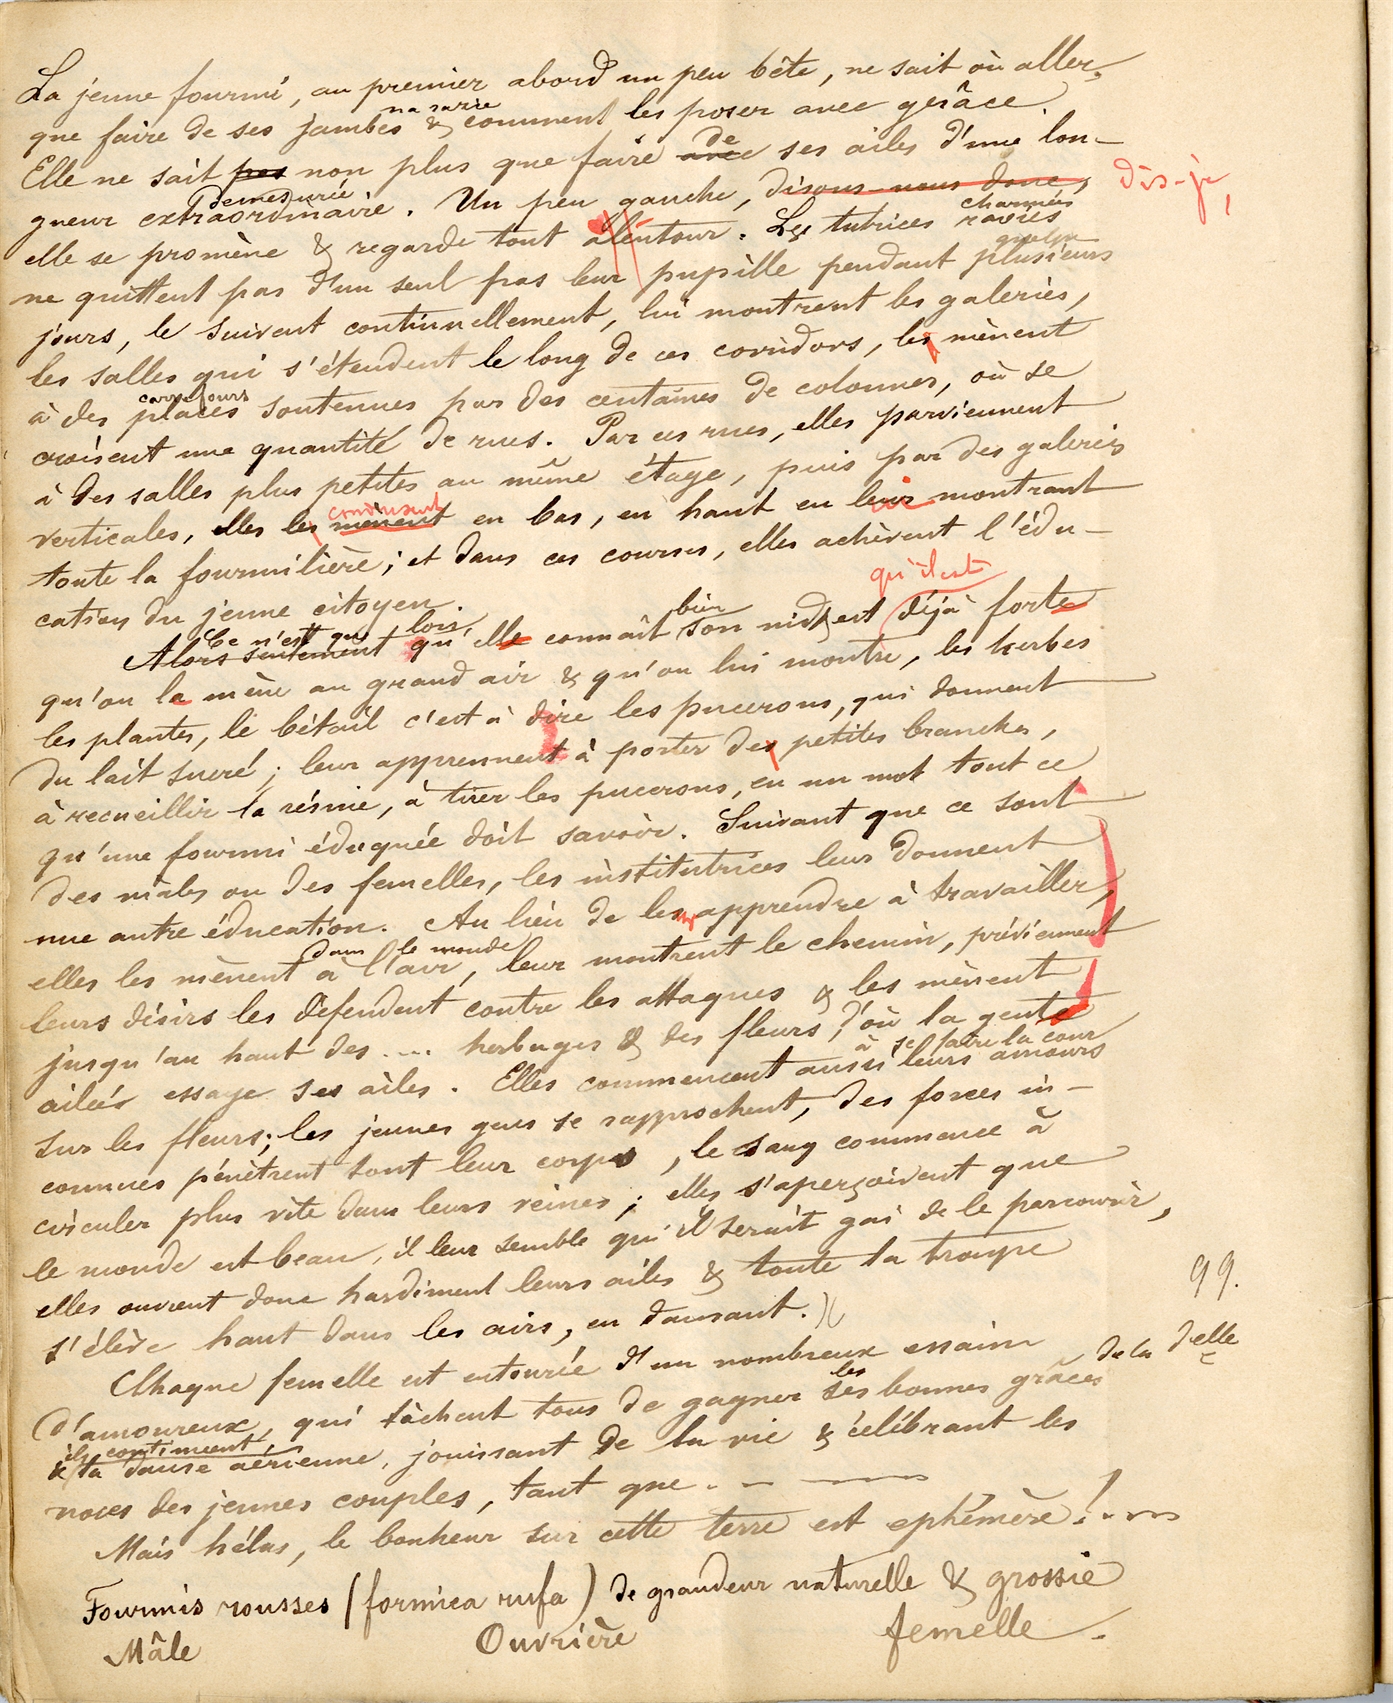 La jeune fourmi, au premier abord un peu bête, ne sait où aller,
que faire de ses jambes & comment les poser avec grâce.
Elle ne sait pas non plus que faire avec de ses ailes d'une lon-
demesurée
gueur extraordinaire. Un peu gauche, disons-nous donc, dis-je,
charmées
elle se promène & regarde tout alentour. Les tutrices ravies
quelques
ne quittent pas d'un seul pas leur pupille pendant plusieurs
jours, le suivent continuellement, lui montrent les galeries,
les salles qui s'étendent le long de ces corridors, les mènent
carrefours
à des places soutenues par des centaines de colonnes, où se
croisent une quantité de rues. Par ces rues, elles parviennent
à des salles plus petites au même étage, puis par des galeries
conduisent
verticales, elles les mènent en bas, en haut en leur montrant
toute la fourmilière; et dans ces courses, elles achèvent l'édu-
cation du jeune citoyen.
Ce n'est que lors bien qu'il est
Alors seulement qu'elle connaît son nid & est déjà forte
qu'on la mène au grand air & qu'on lui montre, les herbes
les plantes, le bétail c'est à dire les pucerons, qui donnent
du lait sucré; leur apprennent à porter des petites branches,
à recueillir la résine, à tirer les pucerons, en un mot tout ce
qu'une fourmi éduquée doit savoir. Suivant que ce sont
des mâles ou des femelles, les institutrices leur donnent
une autre éducation. Au lieu de les apprendre à travailler,
dans le monde
elles les mènent à l'air, leur montrent le chemin, préviennent
leurs désirs les défendent contre les attaques & les mènent
jusqu'au haut des .... herbages & des fleurs, d'où la gente
à se faire la cour
ailée essaye ses ailes. Elles commencent aussi leurs amours
sur les fleurs; les jeunes gens se rapprochent, des forces in-
connues pénètrent tout leur corps, le sang commence à
circuler plus vite dans leurs veines; elles s'aperçoivent que
le monde est beau, il leur semble qu'il serait gai de le parcourir,
elles ouvrent donc hardiment leurs ailes & toute la troupe
s'élève haut dans les airs, en dansant.
99.
Chaque femelle est entourée d'un nombreux essaim
d'amoureux, qui tâchent tous de gagner ses les bonnes grâces de la delle
ils continuent
& la danse aérienne, jouissant de la vie & célébrant les
noces des jeunes couples, tant que . — —
Mais hélas, le bonheur sur cette terre est ephémère!...
Fourmis rousses (formica rufa) de grandeur naturelle & grossie
Mâle Ouvrière femelle.